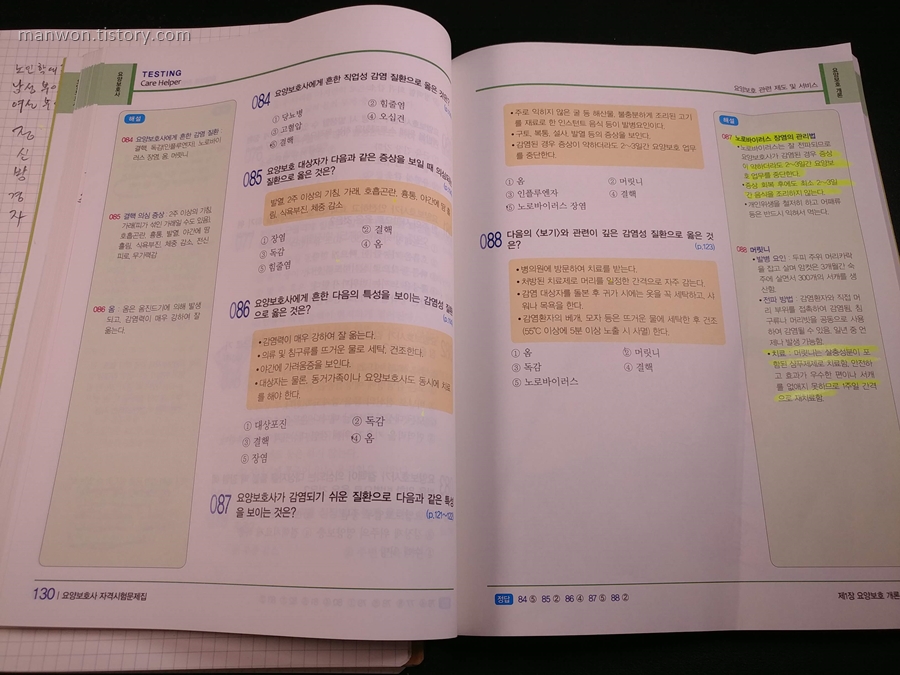 manwon.tistory.com
노인학대
남성
여성
정
신
방
경
자
요양보호사
TESTING
Care Helper
해설
084 요양보호사에게 흔한 감염 질환
결핵, 독감(인플루엔자), 노로바이
러스 장염, 옴, 머릿니
085 결핵 의심 증상 : 2주 이상의 기침,
가래(피가 섞인 가래일 수도 있음)
호흡곤란, 흉통, 발열, 야간에 땀
흘림, 식욕부진, 체중 감소, 전신
피로, 무기력감
086 옴 : 옴은 옴진드기에 의해 발생
되고, 감염력이 매우 강하여 잘
옮는다.
084 요양보호사에게 흔한 직업성 감염 질환으로 옳은 것은?
① 당뇨병 ② 힘줄염
③ 고혈압 ④ 오십견
⑤ 결핵
085 요양보호 대상자가 다음과 같은 증상을 보일 때 의심되는
질환으로 옳은 것은?
발열, 2주 이상의 기침, 가래, 호흡곤란, 흉통, 야간에 땀 흘
림, 식욕부진, 체중 감소
① 장염 ② 결핵
③ 독감 ④ 옴
⑤ 힘줄염
086 요양보호사에게 흔한 다음의 특성을 보이는 감염성 질환
으로 옳은 것은?
• 감염력이 매우 강하여 잘 옮는다.
• 의류 및 침구류를 뜨거운 물로 세탁, 건조한다.
• 야간에 가려움증을 보인다.
• 대상자는 물론, 동거가족이나 요양보호사도 동시에 치료
를 해야 한다.
① 대상포진 ② 독감
③ 결핵 ④ 옴
⑤ 장염
087 요양보호사가 감염되기 쉬운 질환으로 다음과 같은 특성
을 보이는 것은? (p.121~122)
130 | 요양보호사 자격시험문제집
요양보호 관련 제도 및 서비스
요양보호 개론
• 주로 익히지 않은 굴 등 해산물, 불충분하게 조리된 고기
를 재료로 한 인스턴트 음식 등이 발병요인이다.
• 구토, 복통, 설사, 발열 등의 증상을 보인다.
• 감염된 경우 증상이 약하더라도 2~3일간 요양보호 업무
를 중단한다.
① 옴 ② 머릿니
③ 인플루엔자 ④ 결핵
⑤ 노로바이러스 장염
088 다음의 〈보기〉와 관련이 깊은 감염성 질환으로 옳은 것
은? (p.123)
• 병의원에 방문하여 치료를 받는다.
• 처방된 치료제로 머리를 일정한 간격으로 자주 감는다.
• 감염 대상자를 돌본 후 귀가 시에는 옷을 꼭 세탁하고, 샤
워나 목욕을 한다.
• 감염환자의 베개, 모자 등은 뜨거운 물에 세탁한 후 건조
(55℃ 이상에 5분 이상 노출 시 사멸) 한다.
① 옴 ② 머릿니
③ 독감 ④ 결핵
⑤ 노로바이러스
해설
087 노로바이러스 장염의 관리법
• 노로바이러스는 잘 전파되므로
요양보호사가 감염된 경우 증상
이 약하더라도 2~3일간 요양보
호 업무를 중단한다.
• 증상 회복 후에도 최소 2~3일
간 음식을 조리하지 않는다.
• 개인위생을 철저히 하고 어패류
등은 반드시 익혀서 먹는다.
088 머릿니
• 발병 요인 : 두피 주위 머리카락
을 잡고 살며 암컷은 3개월간 숙
주에 살면서 300개의 서캐를 생
산함
• 전파 방법 : 감염환자와 직접 머
리 부위를 접촉하여 감염됨, 침
구류나 머리빗을 공동으로 사용
하여 감염될 수 있음, 일년 중 언
제나 발생 가능함.
• 치료 : 머릿니는 살충성분이 포
함된 샴푸제제로 치료함, 안전하
고 효과가 우수한 편이나 서캐
를 없애지 못하므로 1주일 간격
으로 재치료함.
정답 84 ⑤ 85 ② 86 ④ 87 ⑤ 88 ②
제1장 요양보호 개론